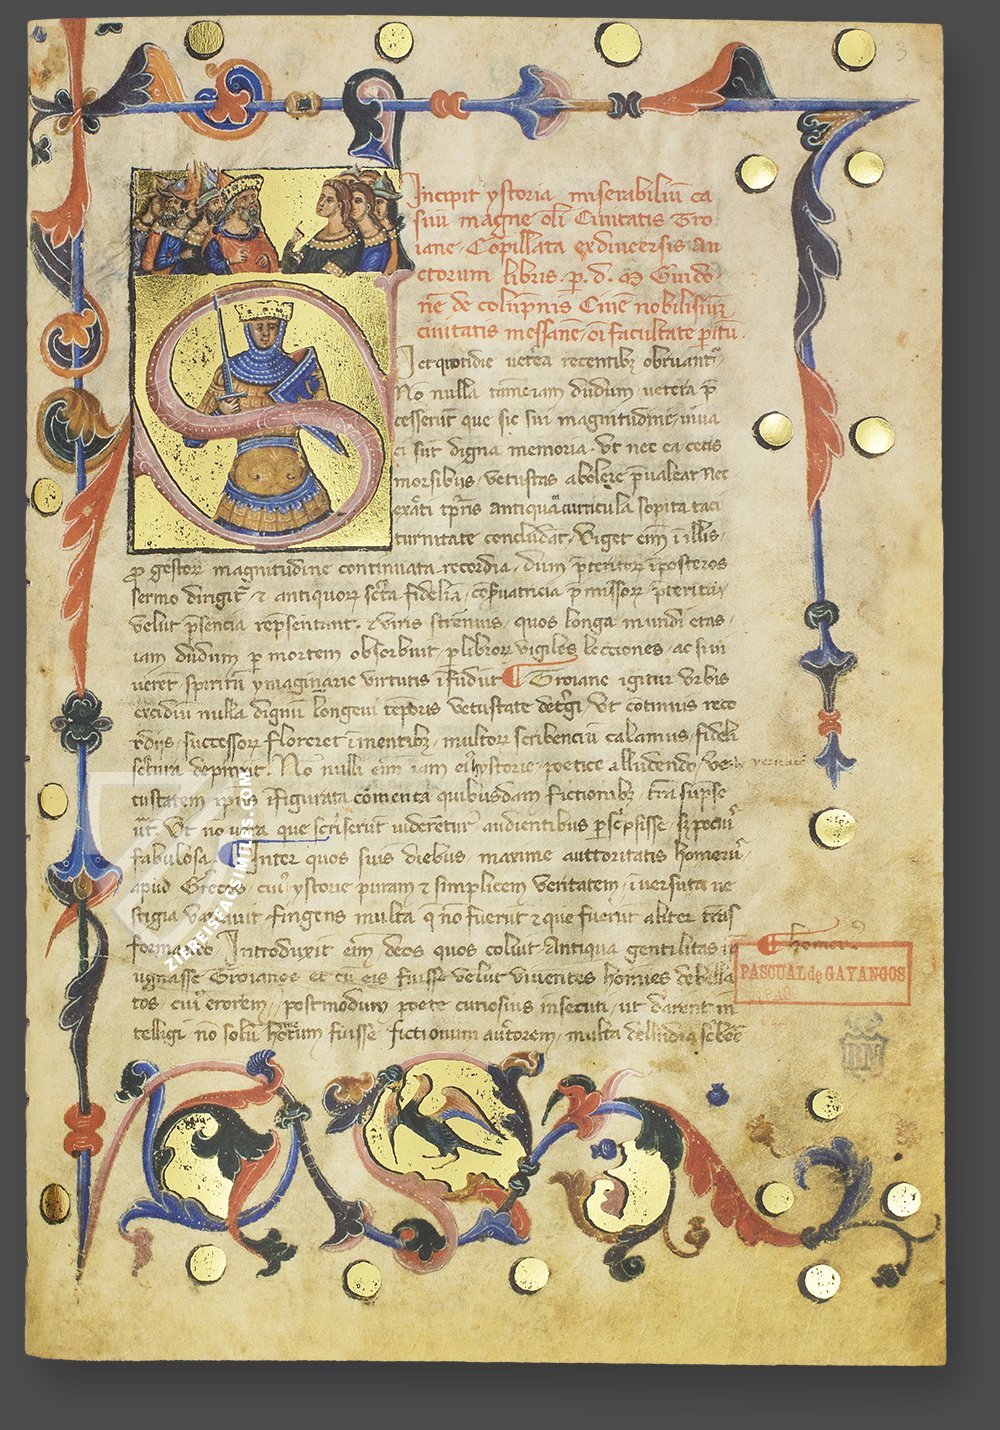 3
Incipit ystoria miserabiliū ca
suū magne olī Ciuitatis Tro
iane. Cōpillata ex diuersis au
ctorum libris. p. d. M Guido
nē de colūpnis Ciue nobilissime
ciuitatis messane. oī facultate pitū.
et quotidie vetera recentibꝫ obruant
Nō nulla tamē iam dudum vetera p
cesserūt que sic sui magnitudine viua
ci sūt digna memoria. Vt nec ea cecis
morsibus vetustas abolere pualeat. Nec
exāti tpris antiqua curricula sopita taci
turnitate concludāt. Viget em̄ ī illis
ꝓ gestoꝝ magnitudine continuata recordia. dum pteritoꝝ ī posteros
sermo dirigit̄ ⁊ antiquoꝝ scta fidelia. cōseruatricia pmissoꝝ pterita
velut psencia repsentant. ⁊ viris strenuis. quos longa mundi etas
iam dudum p mortem obsorbuit. p libroꝝ vigiles lecciones. ac si vi
ueret spiritū ymaginarie virtutis īfūdūt Troiane igitur Vrbis
excidiū nulla dignū longeui tēporis vetustate detgi. Vt cōtinuis reco
rdiis. successoꝝ floreret ī mentibꝫ. multoꝝ scribenciū calamus. fideli
sc̄tura depinxit. Nō nulli eim iam ei hystorie poetice alludendo. ve
veritate
custatem ipius ī figurata cōmenta quibusdam fictionibꝫ trāsūpse
ut. Vt nō vera que scriserūt viderētur audientibus psc̄psisse. sꝫ pociꝰ
fabulosa. Inter quos suis diebus. maxime auttoritatis homerꝰ.
apud Grecos. cuiꝰ ystorie puram ⁊ simplicem veritatem. ī versuta ue
stigia variauit. fingens multa q nō fuerūt ⁊ que fuerūt aliter trās
formando Introduxit eim deos quos coluit Antiqua gentilitas im
homerꝰ
ugnasse Troianos et cū eis fuisse velut viuentes homies debella
tos cuiꝰ erorem. postmodum poete curiosius insecuti. ut darent in
telligi nō solū homerum fuisse fictionum auctorem. multa
PASCUAL de GAYANGOS
BN
ZIEREISFACSIMILES.COM